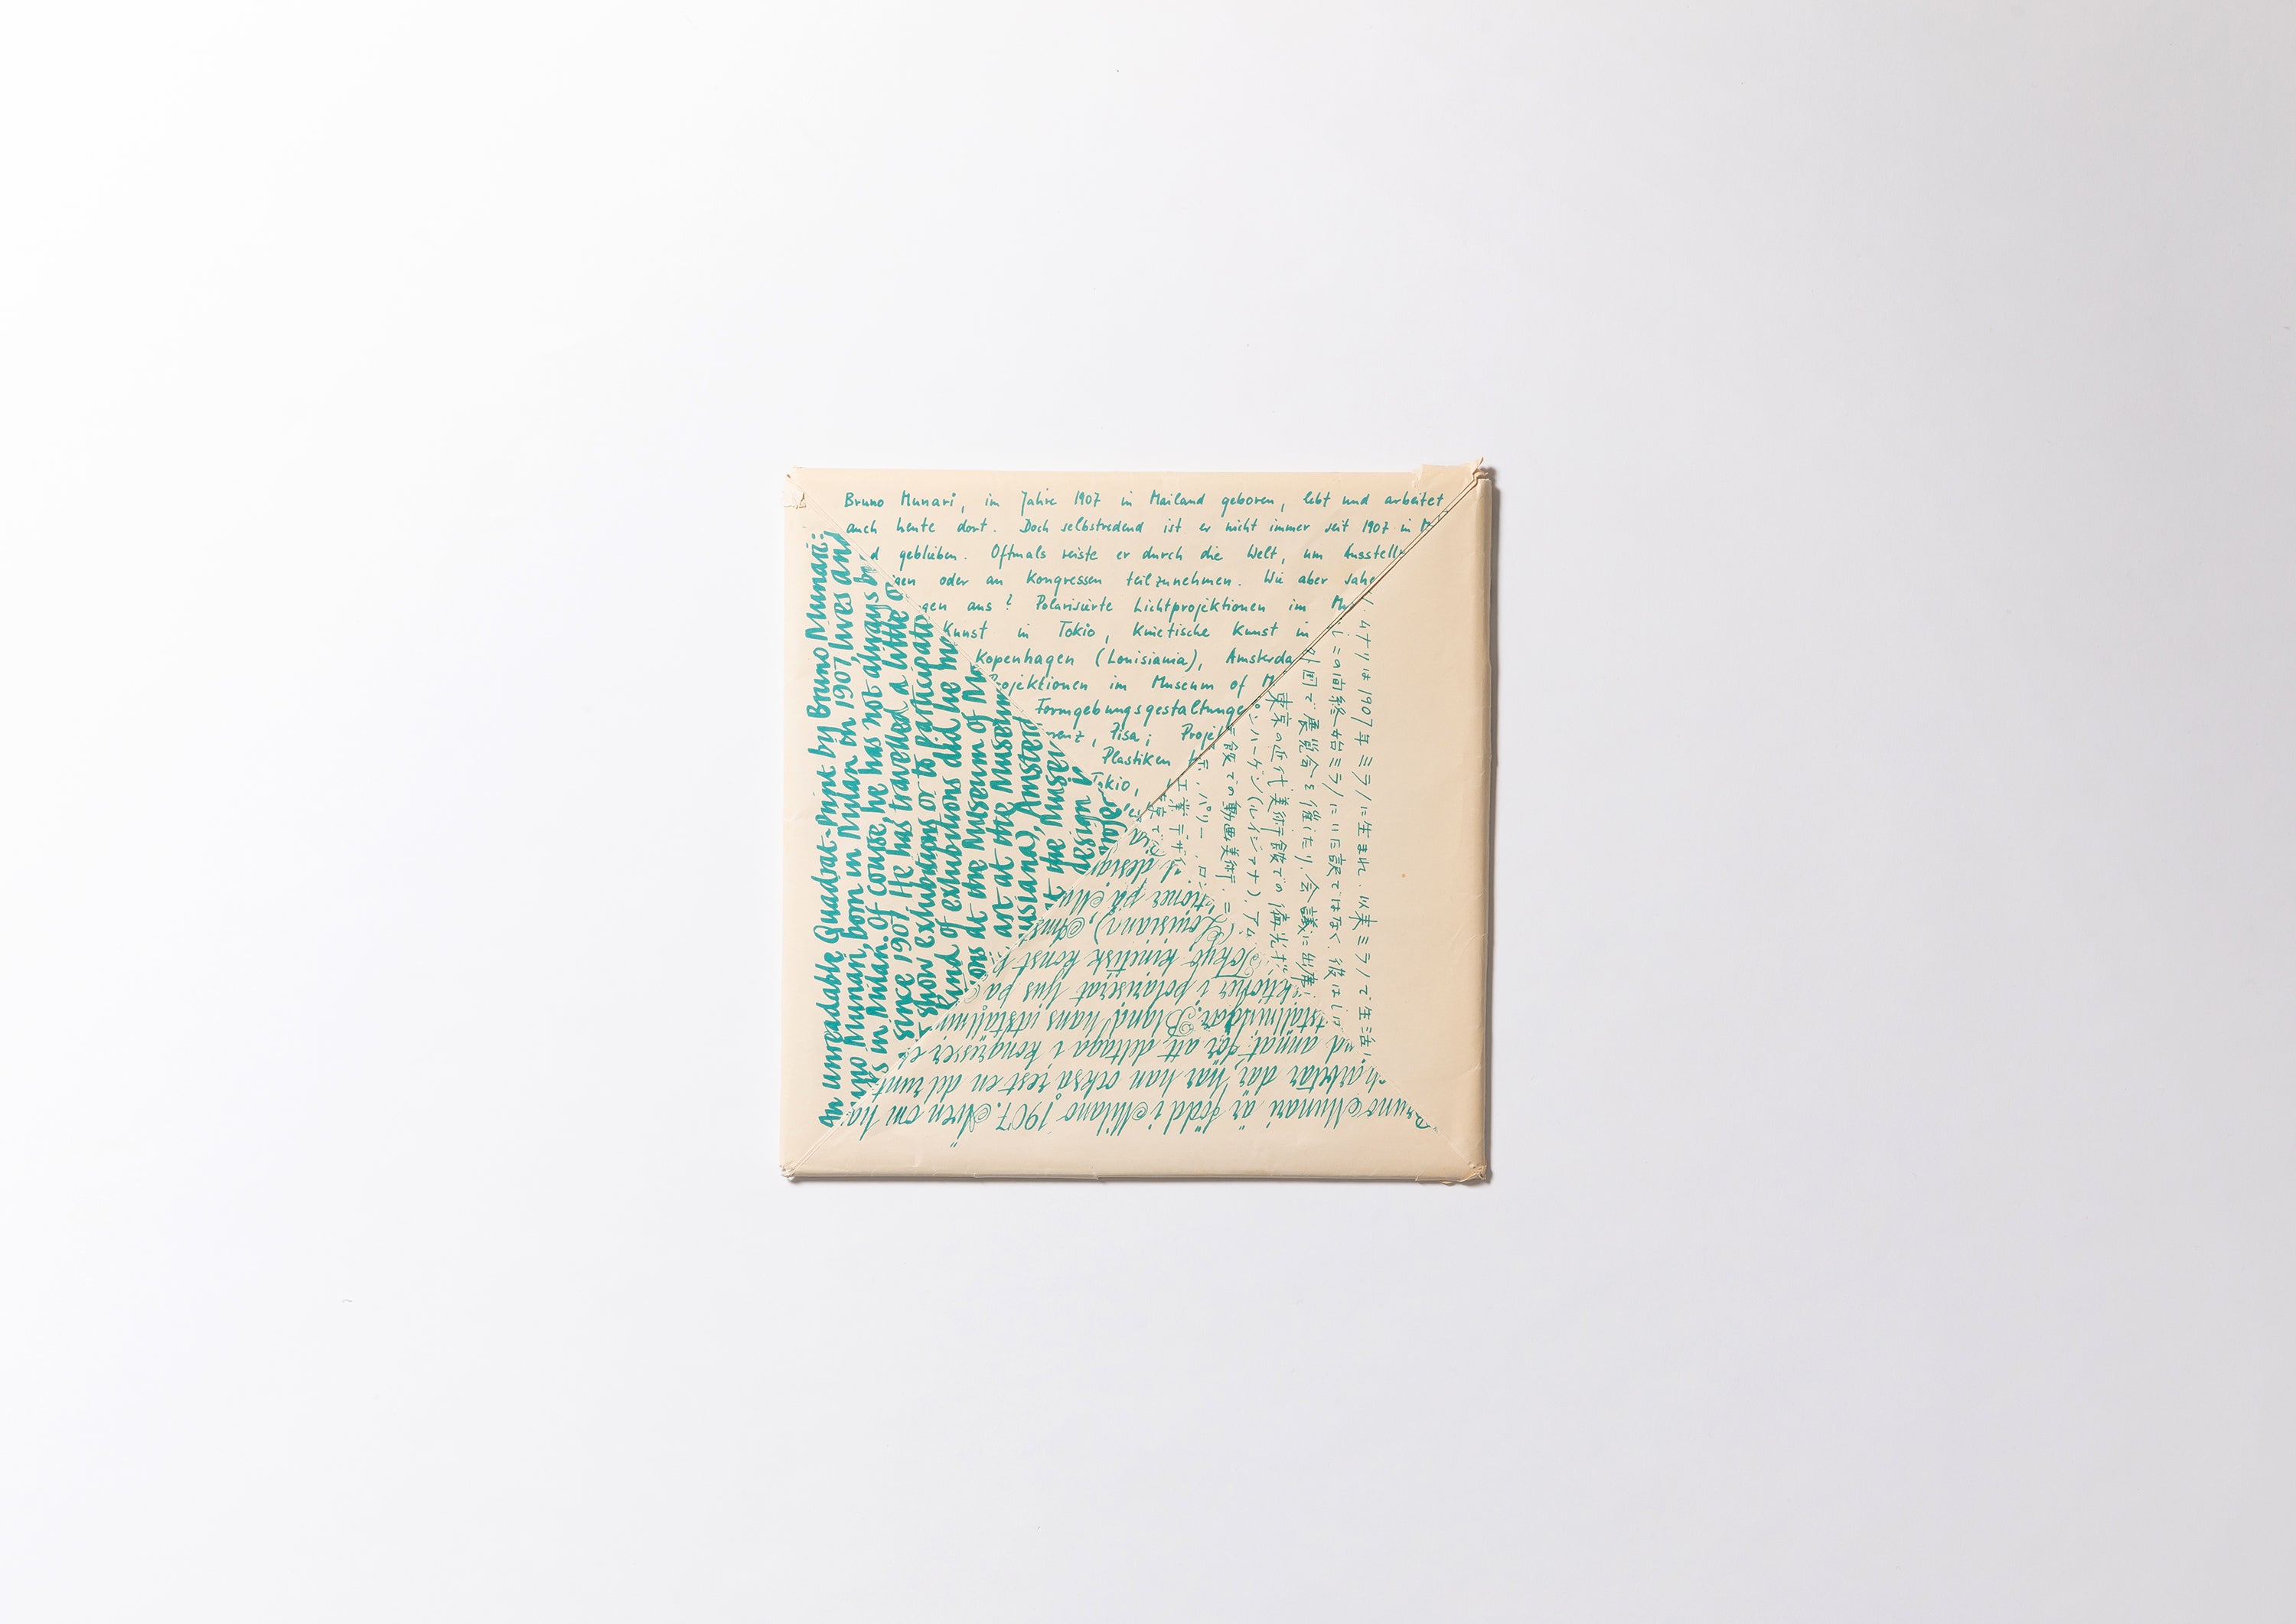 Bruno Munari, im Jahre 1907 in Mailand geboren, lebt und arbeitet
auch heute dort. Doch selbstredend ist er nicht immer seit 1907 in M
d geblieben. Oftmals reiste er durch die Welt, um Ausstell
gen oder an Kongressen teilzunehmen. Wie aber sahe
gen aus? Polarisierte Lichtprojektionen im M
Kunst in Tokio, Kinetische Kunst in
Kopenhagen (Louisiania), Amsterda
rojektionen im Museum of M
Formgebungsgestaltunge
renz, Pisa; Proje
Plastiken
Tokio,
An unreadable Quadrat-Print by Bruno Munari:
uno Munari, born in Milan in 1907, lives and
s in Milan. Of course, he has not always b
since 1907. He has travelled a little o
show exhibitions or to participate
kind of exhibitions did he m
ons at the Museum of Mo
art at the Museum
isiana), Amsterd
t the Museu
design i
ムナリは1907年ミラノに生まれ、以来ミラノで生活し
しこの間終始ミラノにいた訳ではなく、彼はしば
外国で展覧会を催したり、会議に出席
東京の近代美術館での偏光
ペンハーゲン(ルイジアナ)、アム
館での動画美術、ニ
パリー、ロン
工業デザイ
東京で
Bruno Munari är född i Milano 1907. Även om ha
h arbetar där, har han också rest en del runt
nd annat för att deltaga i kongresser e
tställningar. Bland hans utställnin
ektioner i polariserat ljus på
Tokyo, kinetisk konst
(Louisiana), Amst
tioner på Mu
design